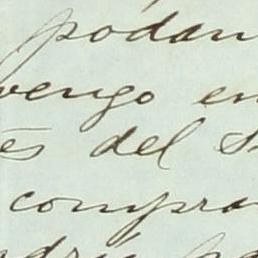 podan
vengo en
és del S
compra